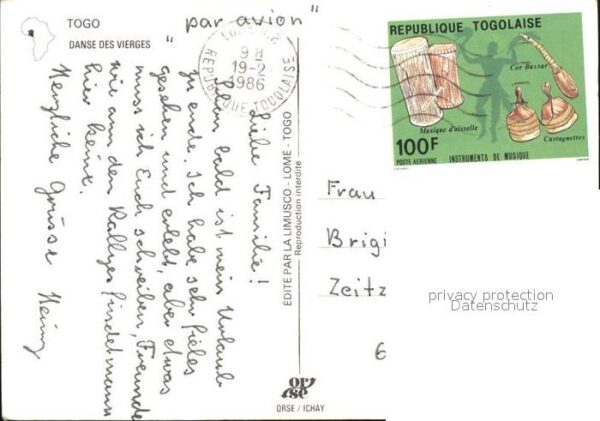 TOGO
DANSE DES VIERGES
"par avion"
Liebe Familie!
Schon bald ist mein Urlaub
zu ende. Ich habe sehr vieles
gesehen und erlebt, aber etwas
muss ich Euch schreiben, Freunde
wie an den Rallyes findet man
hier keine.
Herzliche Grüsse
EDITÉ PAR LA LIMUSCO - LOME - TOGO
Reproduction interdite
ORSE / ICHAY
9
19-2
1986
REPUBLIQUE TOGOLAISE
REPUBLIQUE TOGOLAISE
Cor Bassar
Musique d'aisselle
Castagnettes
100F
POSTE AERIENNE INSTRUMENTS DE MUSIQUE
Frau
Brigi
Zeitz
6
privacy protection
Datenschutz